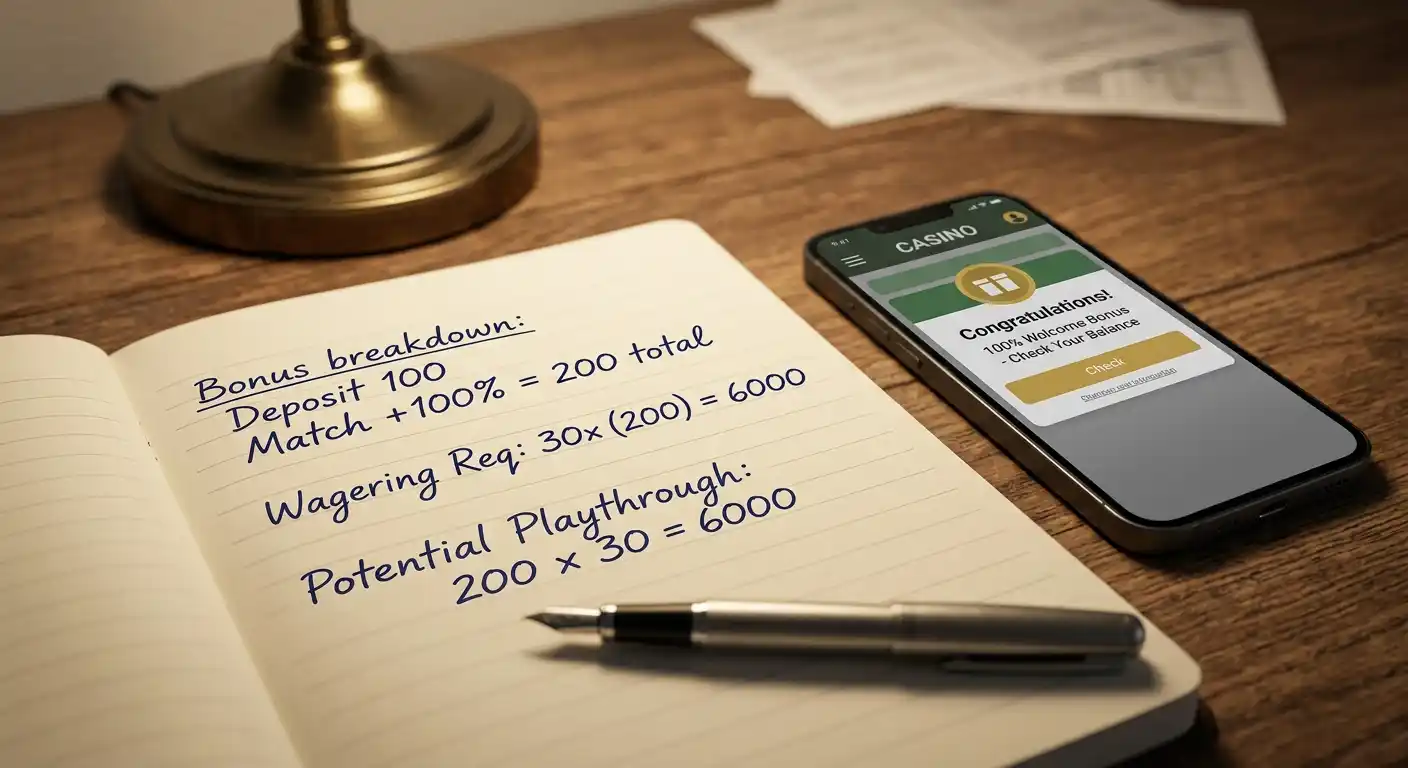 Bonus breakdown:
Deposit 100
Match +100% = 200 total
Wagering Req: 30x (200) = 6000
Potential Playthrough:
200 × 30 = 6000
CASINO
Congratulations!
100% Welcome Bonus
- Check Your Balance
Check